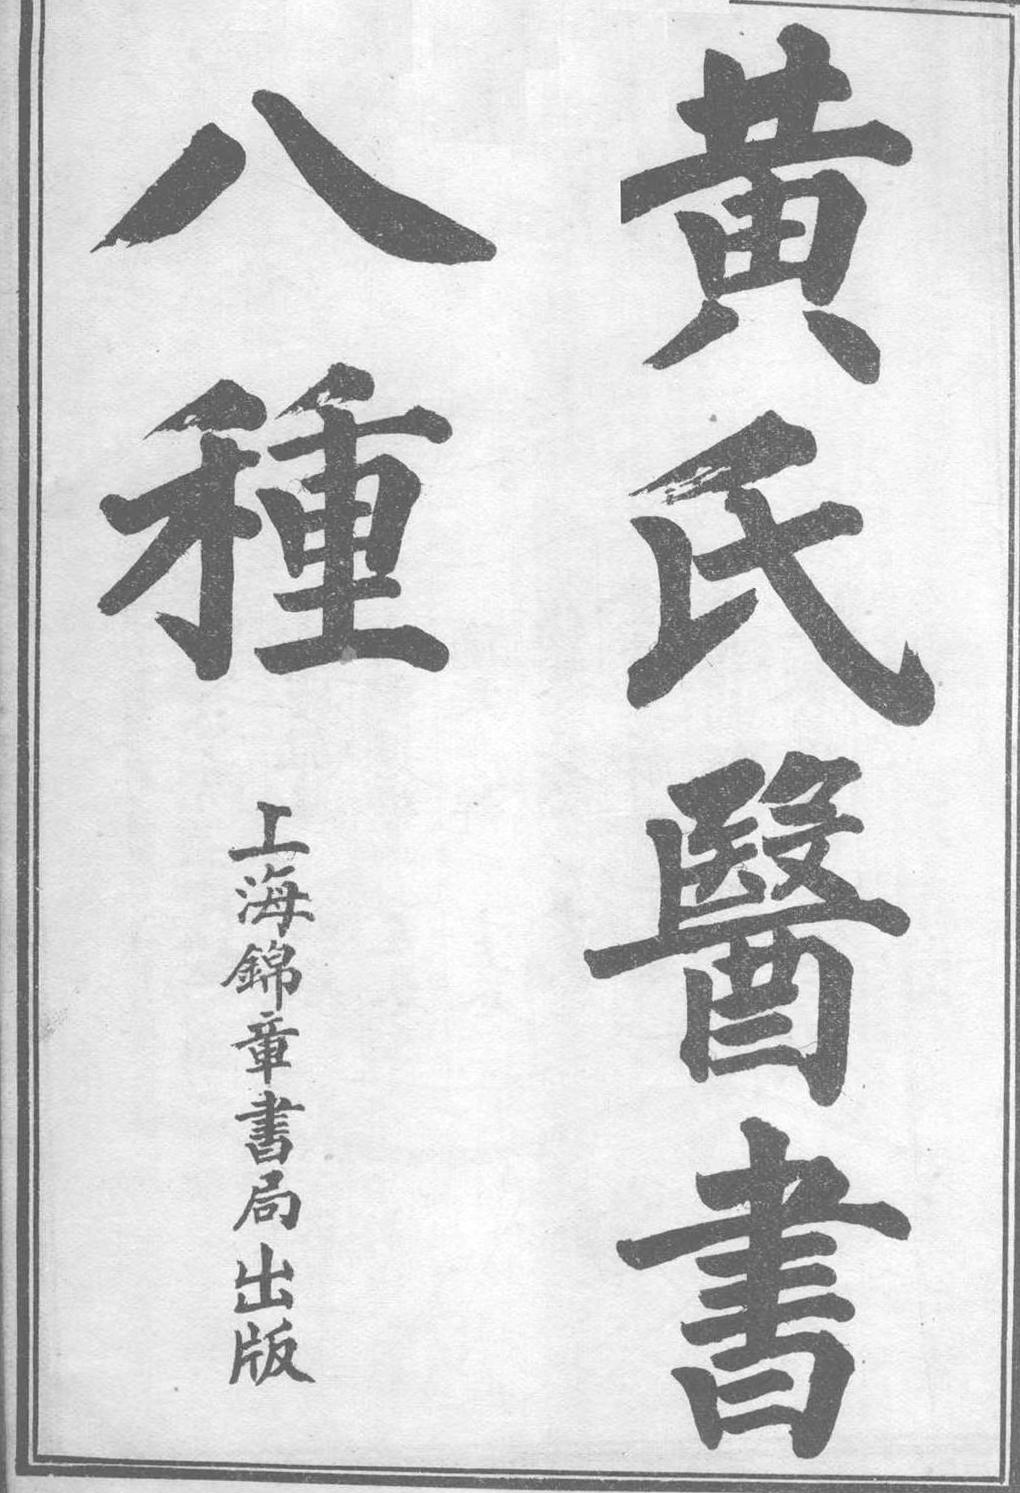 黃氏醫書
八種
上海錦章書局出版